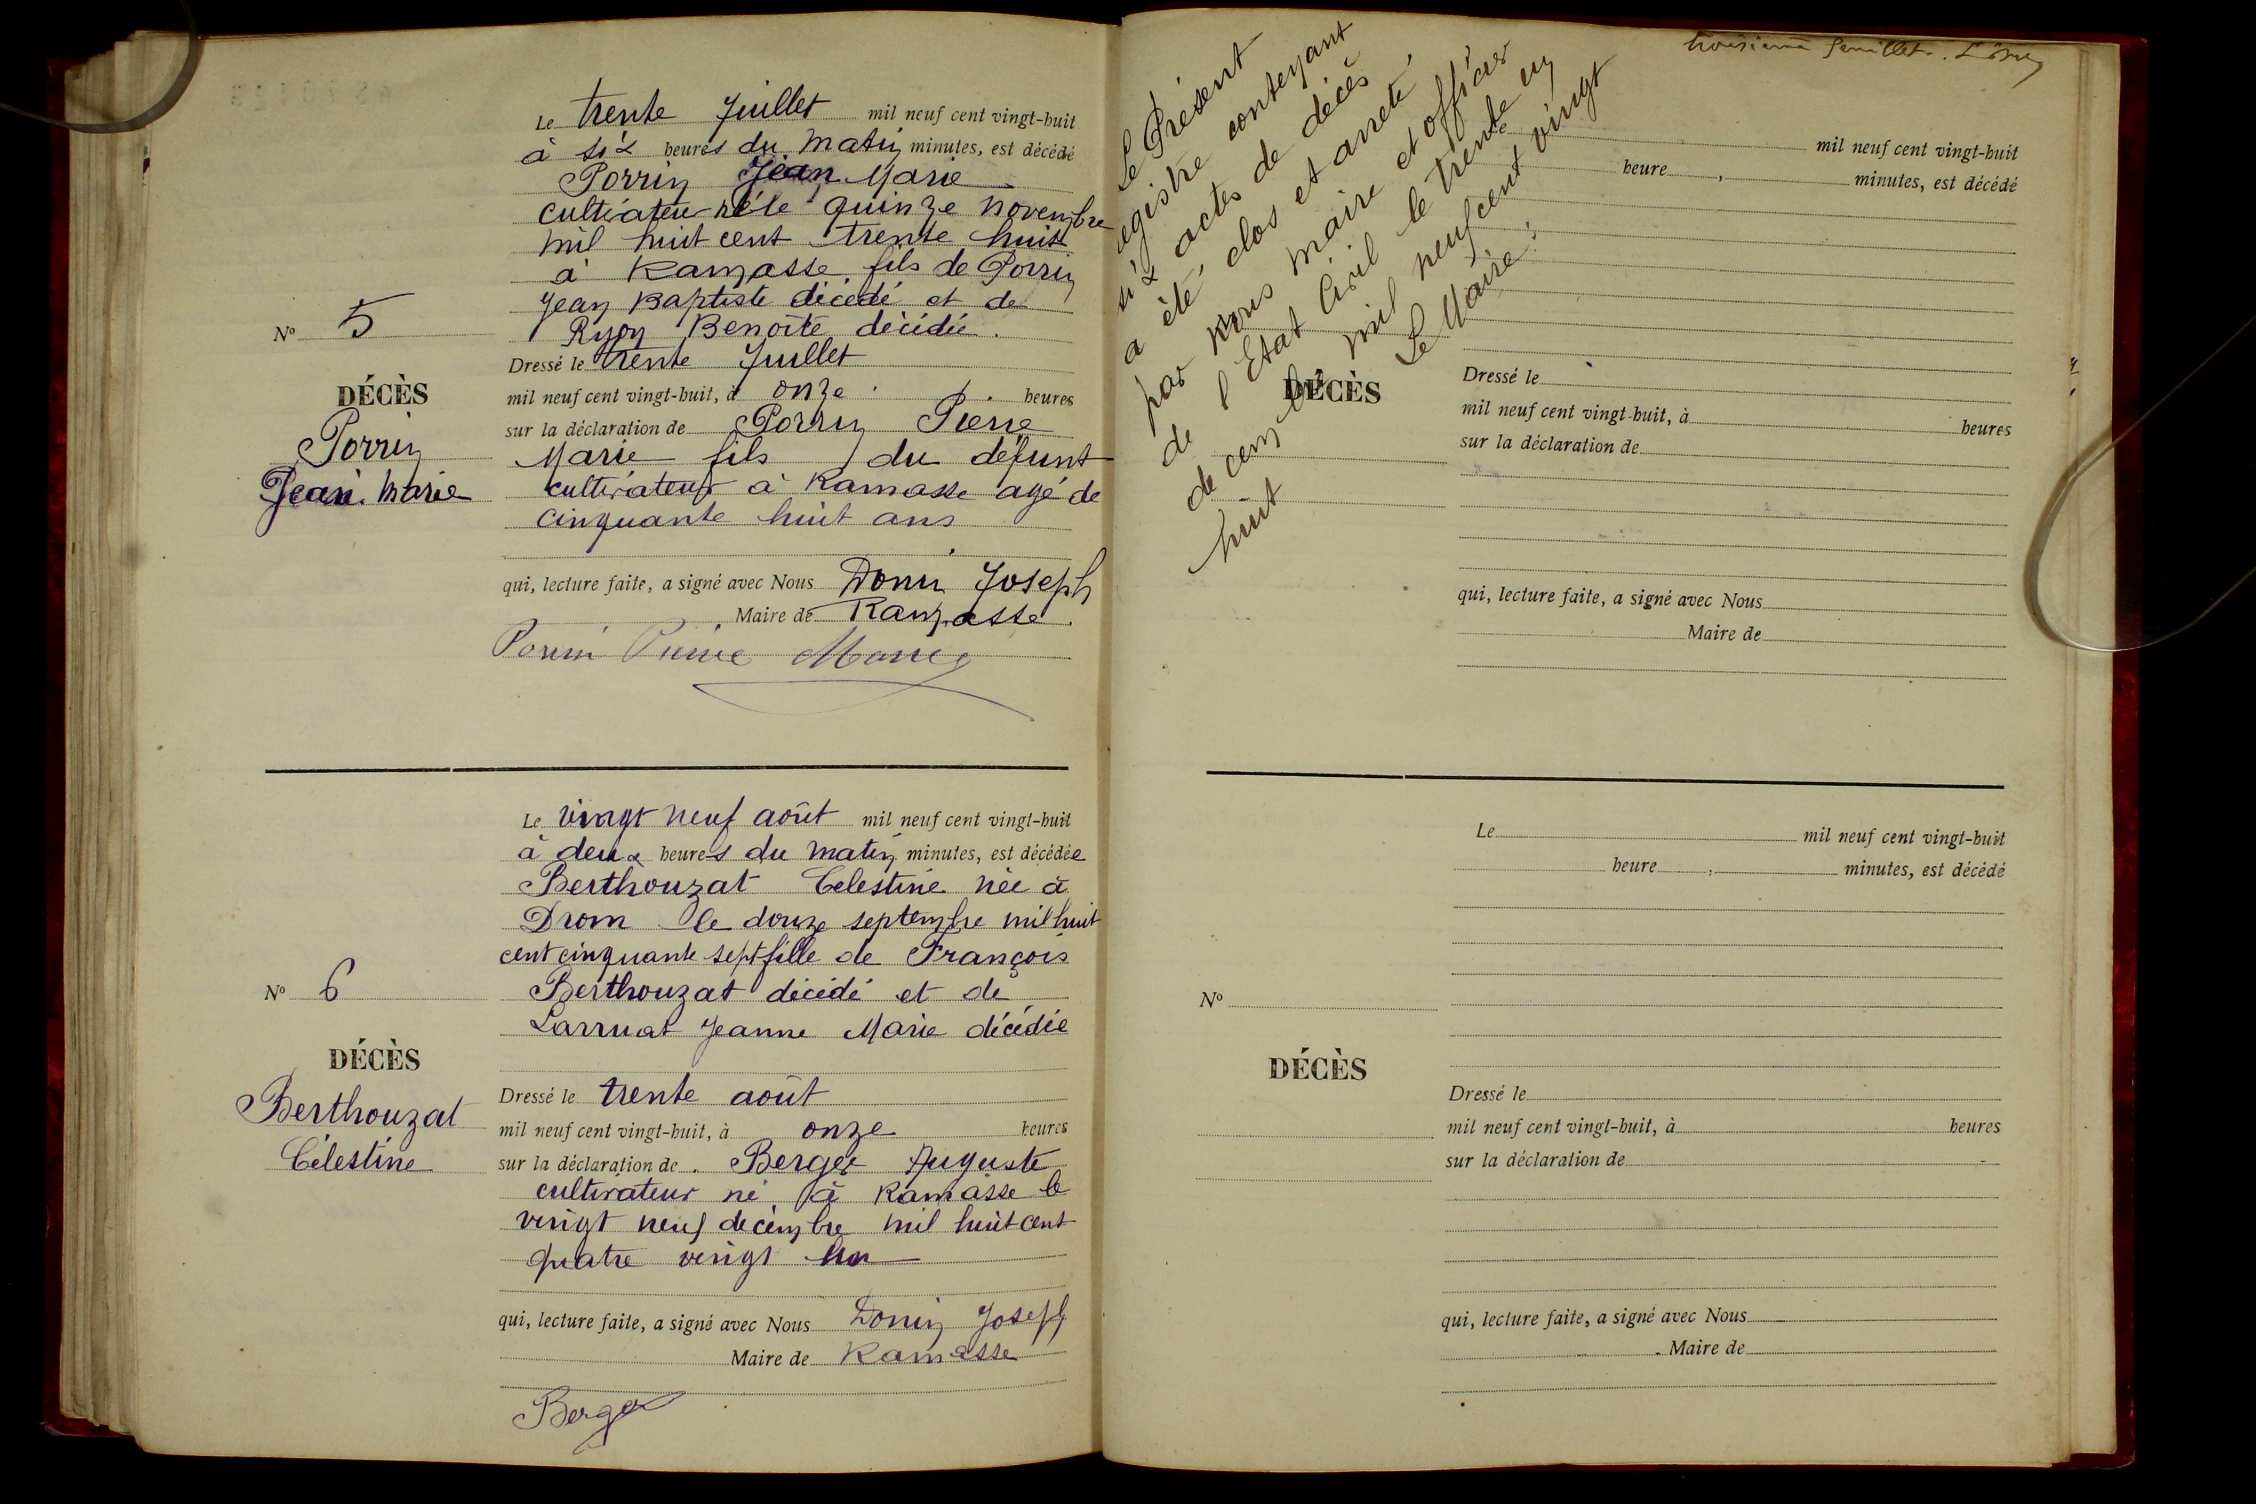 Le trente Juillet mil neuf cent vingt-huit
à six heures du matin minutes, est décédé
Porrin Jean Marie
cultivateur né le quinze novembre
mil huit cent trente huit
à Ramasse fils de Porrin
Jean Baptiste décédé et de
Ryon Benoîte décédée.
Nº 5
Dressé le trente Juillet
DÉCÈS
mil neuf cent vingt-huit, à onze heures
Porrin
sur la déclaration de Porrin Pierre
Marie fils du défunt
Jean Marie
cultivateur à Ramasse agé de
cinquante huit ans
qui, lecture faite, a signé avec Nous Donin Joseph
Maire de Ramasse.
Porrin Pierre Marie
Le vingt neuf août mil neuf cent vingt-huit
à deux heures du matin minutes, est décédée
Berthouzat Célestine née à
Drom le douze septembre mil huit
cent cinquante sept fille de François
Nº 6
Berthouzat décédé et de
Larruat Jeanne Marie décédée
DÉCÈS
Berthouzat
Célestine
Dressé le trente août
mil neuf cent vingt-huit, à onze heures
sur la déclaration de Berger Auguste
cultivateur né à Ramasse le
vingt neuf décembre mil huit cent
quatre vingt un
qui, lecture faite, a signé avec Nous Donin Joseph
Maire de Ramasse
Berger
troisième feuillet.
Le Présent
registre contenant
six actes de décès
a été clos et arreté
par nous maire et officier
de l'Etat Civil le trente un
decembre mil neuf cent vingt
huit
Le Maire:
mil neuf cent vingt-huit
heure minutes, est décédé
DÉCÈS
Dressé le
mil neuf cent vingt-huit, à heures
sur la déclaration de
qui, lecture faite, a signé avec Nous
Maire de
Le mil neuf cent vingt-huit
heure minutes, est décédé
Nº
DÉCÈS
Dressé le
mil neuf cent vingt-huit, à heures
sur la déclaration de
qui, lecture faite, a signé avec Nous
Maire de